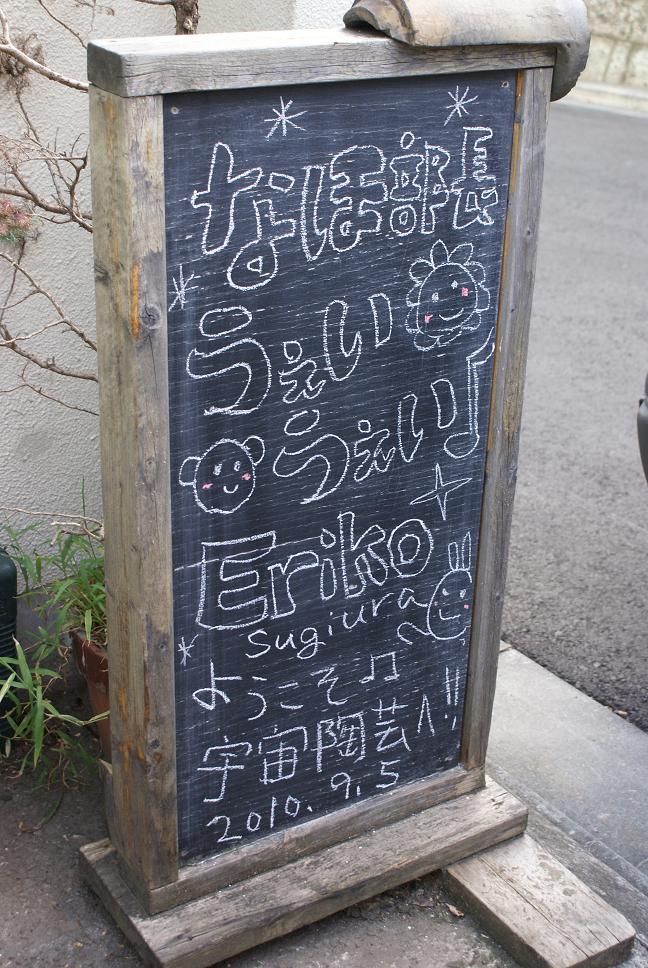 なほ部長
うぇい
うぇい♪
Eriko
sugiura
ようこそ♫
宇宙陶芸へ!!
2010.9.5